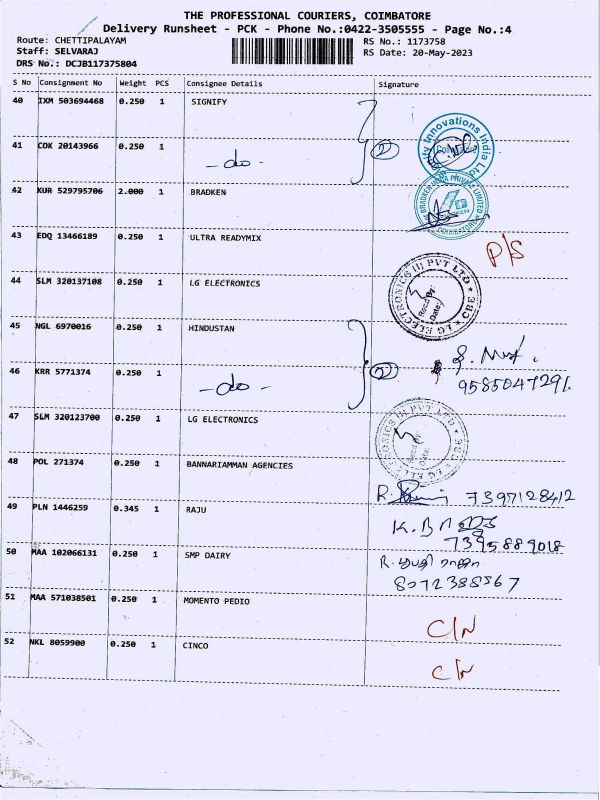 THE PROFESSIONAL COURIERS, COIMBATORE
Delivery Runsheet - PCK - Phone No.:0422-3505555 - Page No.:4
Route: CHETTIPALAYAM RS No.: 1173758
Staff: SELVARAJ RS Date: 20-May-2023
DRS No.: DCJB117375804
S No Consignment No Weight PCS Consignee Details Signature
40 IXM 503694468 0.250 1 SIGNIFY
41 COK 20143966 0.250 1 - do - 2
42 KUR 529795706 2.000 1 BRADKEN
43 EDQ 13466189 0.250 1 ULTRA READYMIX P/S
44 SLM 320137108 0.250 1 LG ELECTRONICS
45 NGL 6970016 0.250 1 HINDUSTAN
46 KRR 5771374 0.250 1 - do - 2 9585047291.
47 SLM 320123700 0.250 1 LG ELECTRONICS
48 POL 271374 0.250 1 BANNARIAMMAN AGENCIES
R. 7397128412
49 PLN 1446259 0.345 1 RAJU
7395889018
50 MAA 102066131 0.250 1 SMP DAIRY
8072388567
51 MAA 571038501 0.250 1 MOMENTO PEDIO C/N
52 NKL 8059900 0.250 1 CINCO C/N